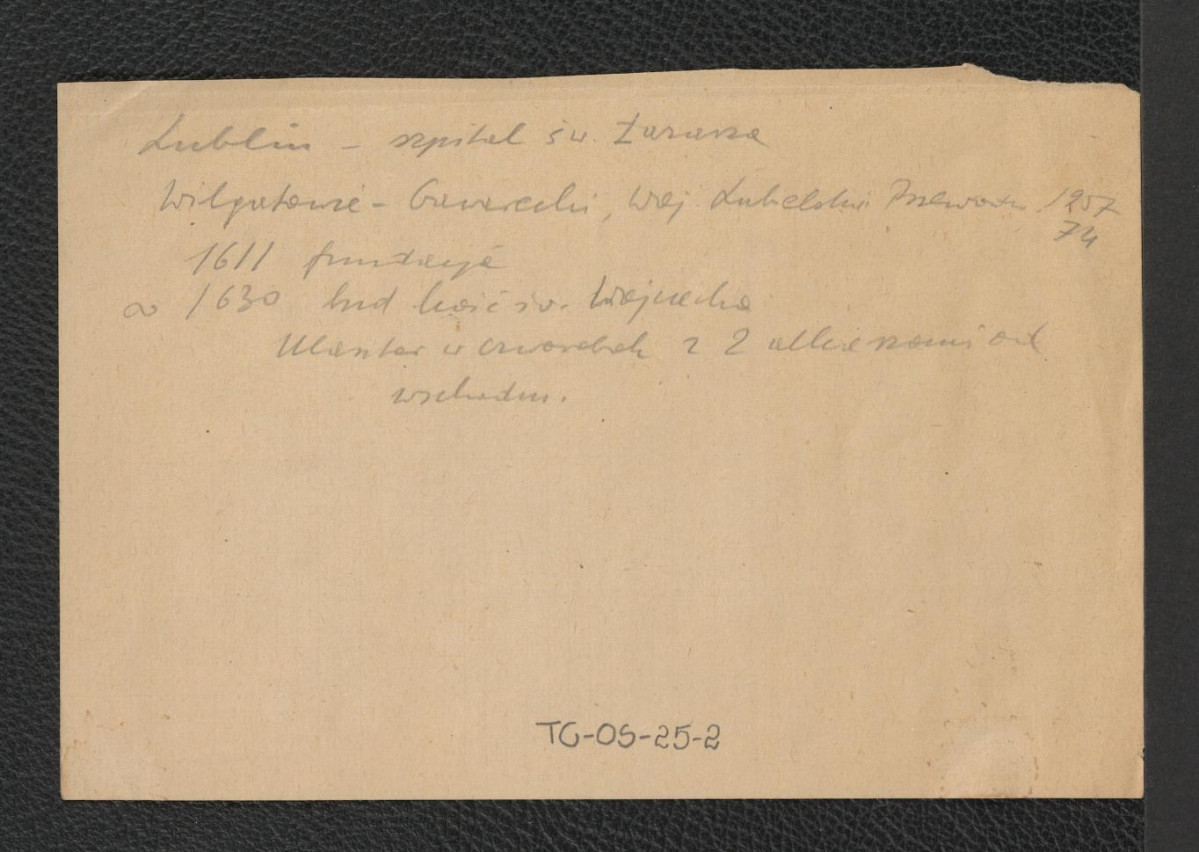 Lublin – szpital św. Łazarza
Wilgatowie – Gawarecki, Woj. Lubelskie Przewodn. 1957
74
1611 fundacja
∾ 1630 bud kość św. Wojciecha
Klasztor w czworobok z 2 alkierzami od
wschodu.
TC-OS-25-2